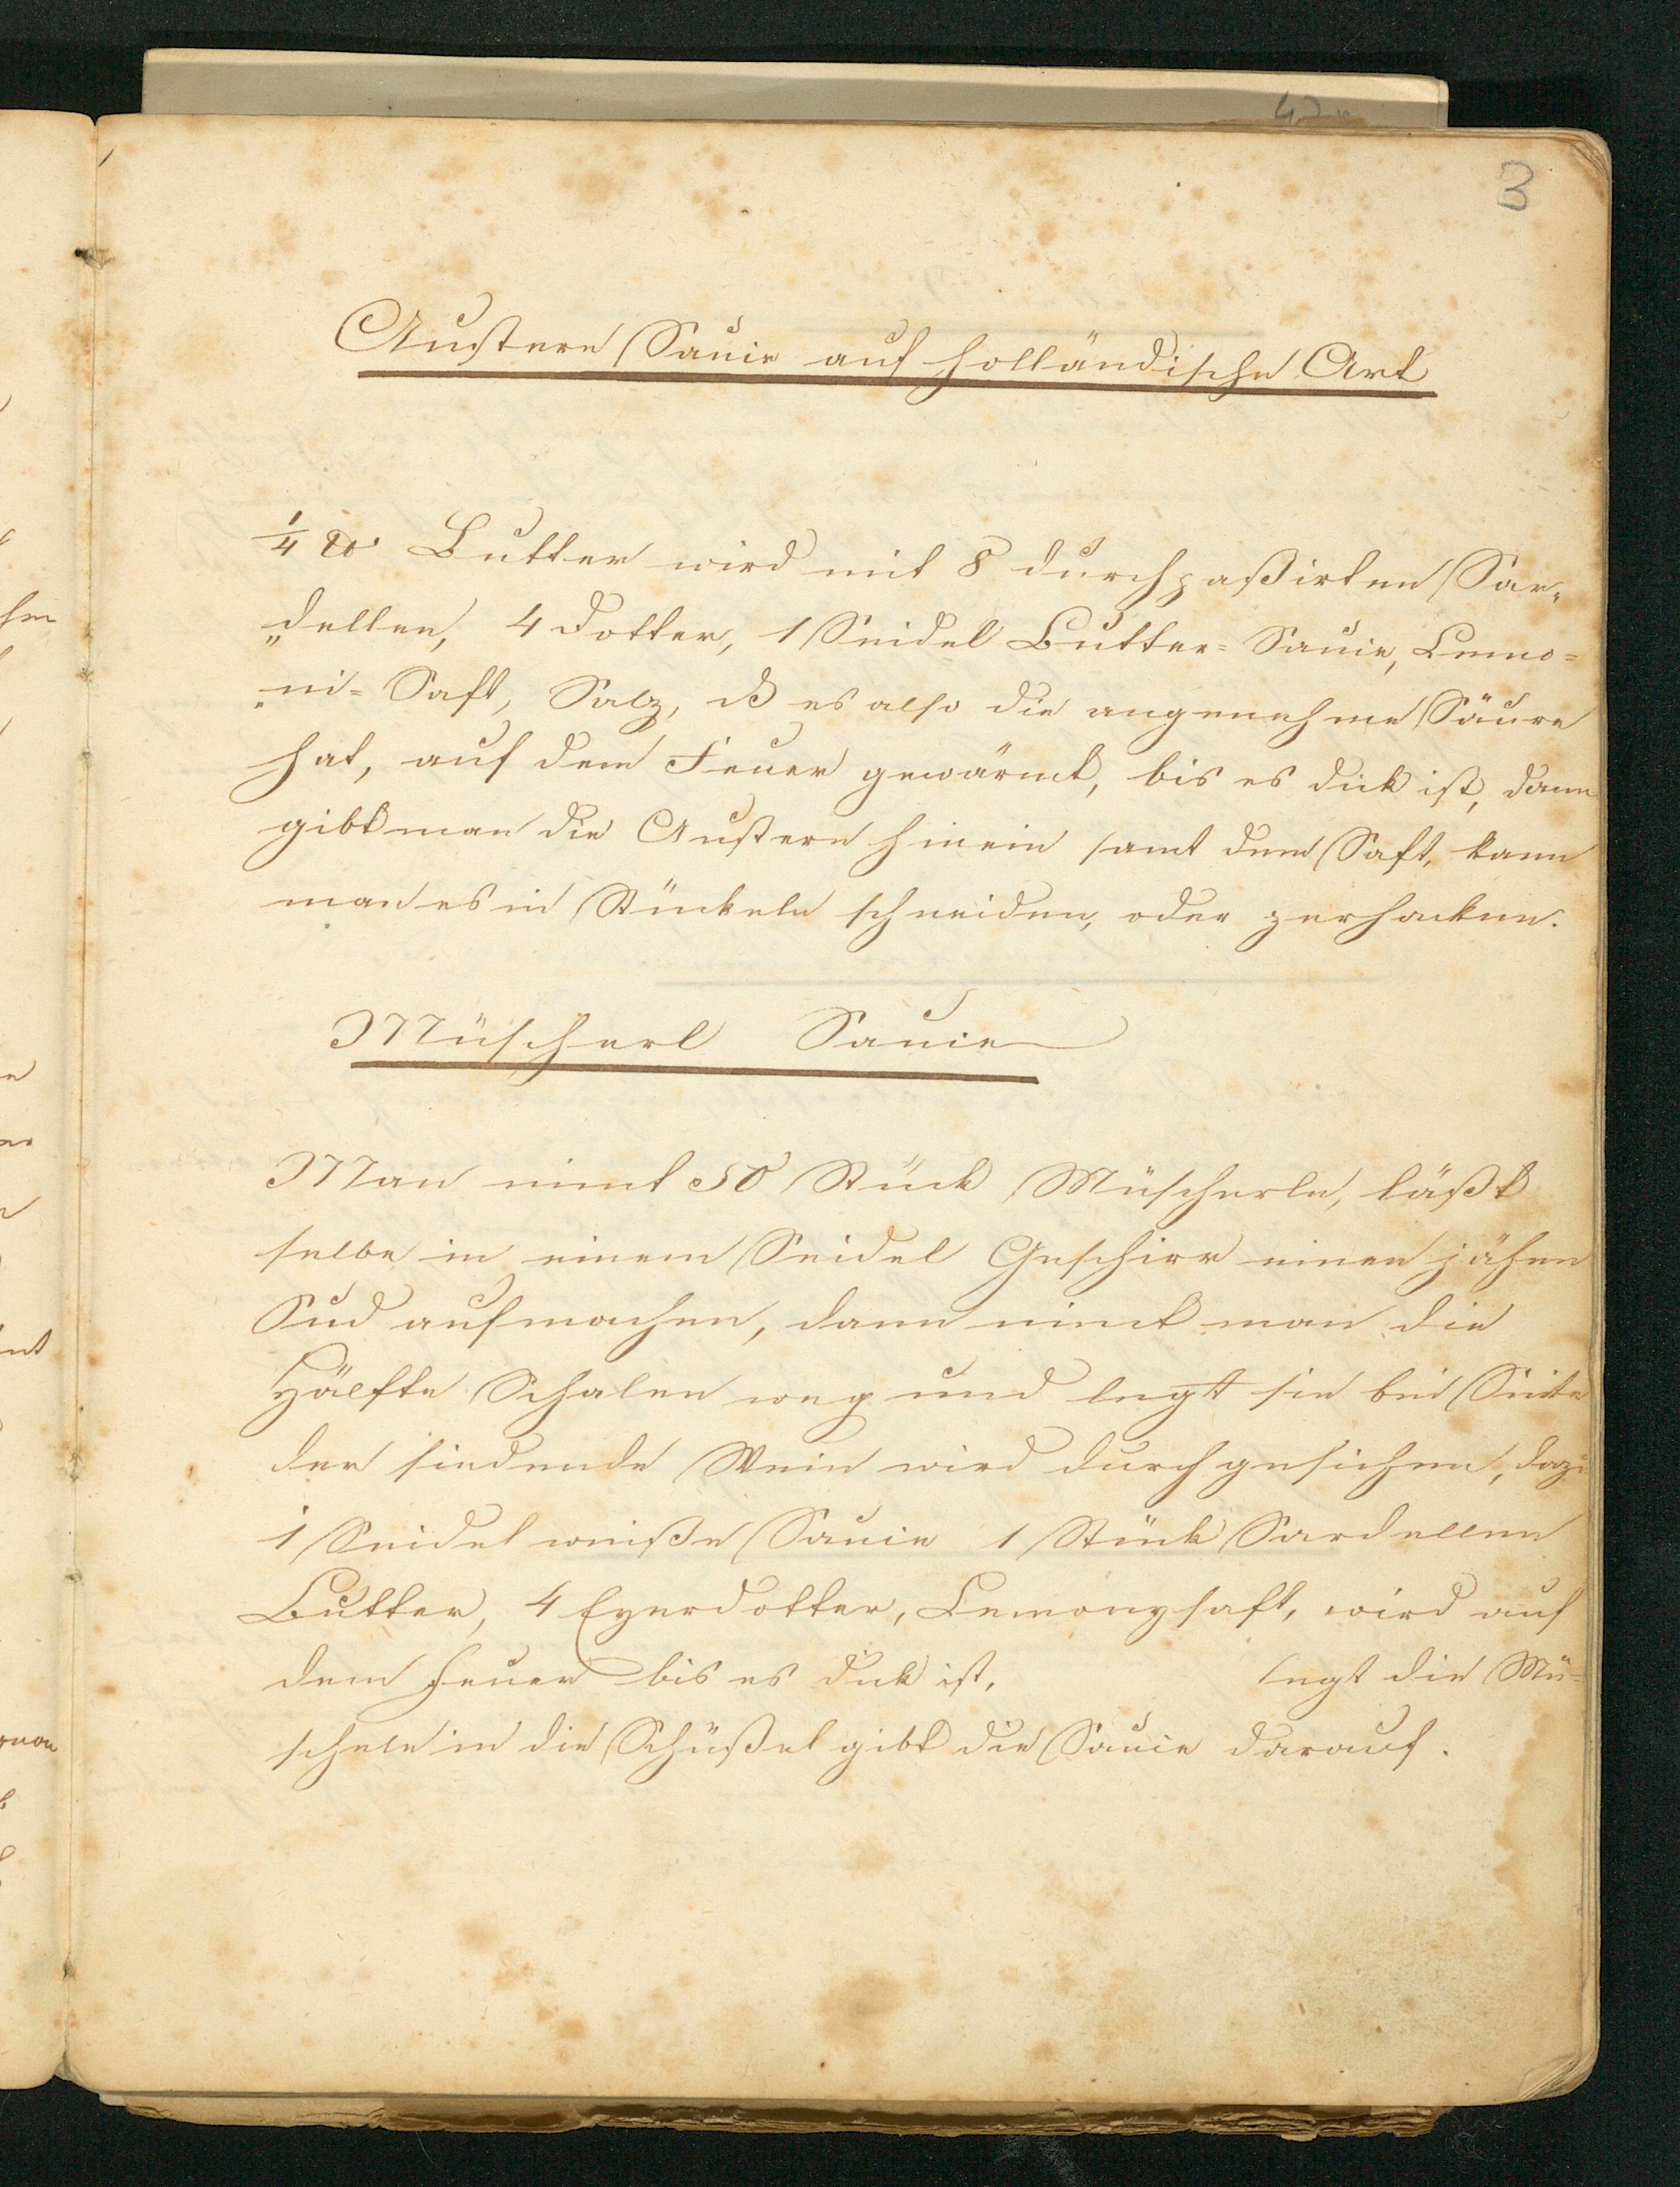 3
Austern Sauce auf holländische Art
1/4 ℔ Butter wird mit 8 durchpaßirten Sar„
„dellen, 4 Dotter, 1 Seidel Butter= Sauce, Lemo=
„ni= Saft, Salz, daß es also die angenehme Säure
hat, auf dem Feuer gewärmt, bis es dick ist, dann
gibt man die Austern hinein samt dem Saft, kann
man es in Stückeln schneiden, oder zerhacken.
Müscherl Sauce
Man nimt 50 Stück Müscherln, läßt
selbe in einem Seidel Geschirr einen jähen
Sud aufmachen, dann nimt man die
Hälfte Schalen weg und legt sie bei Seite
der siedende Wein wird durchgesiehen, dazu
1 Seidel weiße Sauce 1 Stück Sardellen
Butter, 4 Eyerdotter, Lemonysaft, wird auf
dem Feuer bis es dick ist, legt die Mü=
scheln in die Schüßel gibt die Sauce darauf.